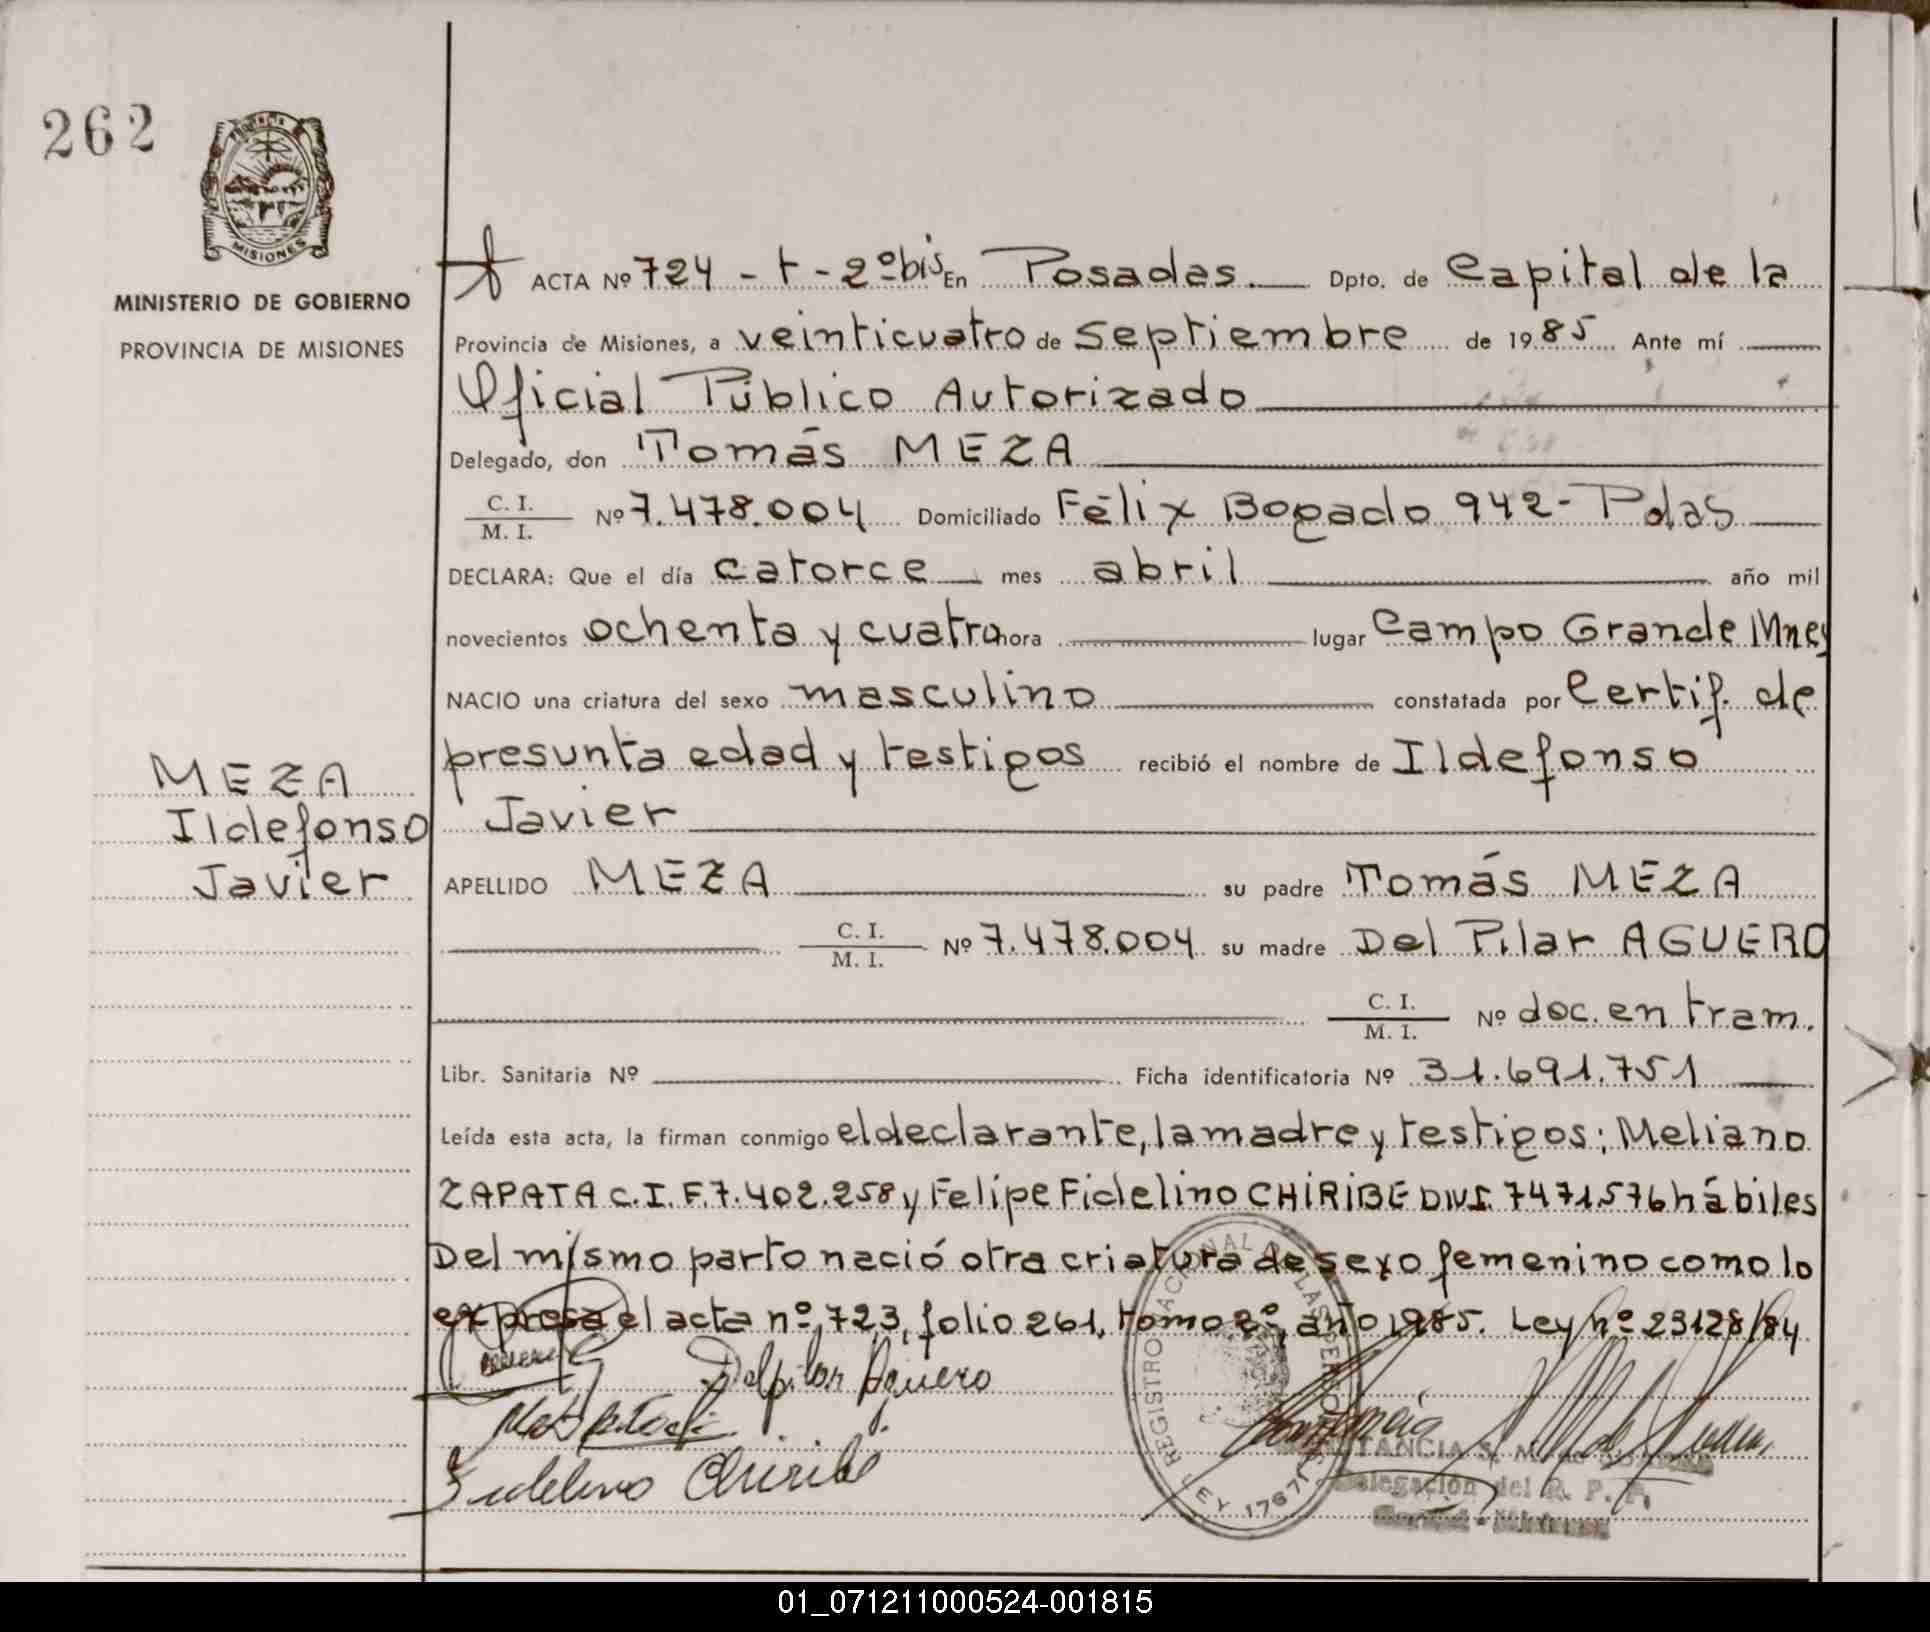 262
MISIONES
MINISTERIO DE GOBIERNO
PROVINCIA DE MISIONES
ACTA Nº 724 - t - 2º bis En Posadas. Dpto. de Capital de la
Provincia de Misiones, a veinticuatro de septiembre de 1985 Ante mí
Oficial Público Autorizado
Delegado, don Tomás MEZA
C. I.
M. I.
Nº 7.478.004 Domiciliado Félix Bogado 942 - Pdas
DECLARA: Que el día catorce mes abril año mil
novecientos ochenta y cuatro hora lugar Campo Grande Mnes
NACIO una criatura del sexo masculino constatada por Certif. de
presunta edad y testigos recibió el nombre de Ildefonso
Javier
MEZA
Ildefonso
Javier
APELLIDO MEZA su padre Tomás MEZA
C. I.
M. I.
Nº 7.478.004 su madre Del Pilar AGUERO
C. I.
M. I.
Nº doc. en tram.
Libr. Sanitaria Nº Ficha identificatoria Nº 31.691.751
Leída esta acta, la firman conmigo el declarante, la madre y testigos: Meliano
ZAPATA C.I.F. 7.402.258 y Felipe Fidelino CHIRIBE DNI. 7471.576 hábiles
Del mismo parto nació otra criatura de sexo femenino como lo
expresa el acta nº 723, folio 261, tomo 2º, año 1985. Ley nº 23128/84
Delpilar Aguero
Fidelino Chiribe
REGISTRO NACIONAL DE LAS PERSONAS
LEY 17671
Delegación del R. P. P.
01_071211000524-001815